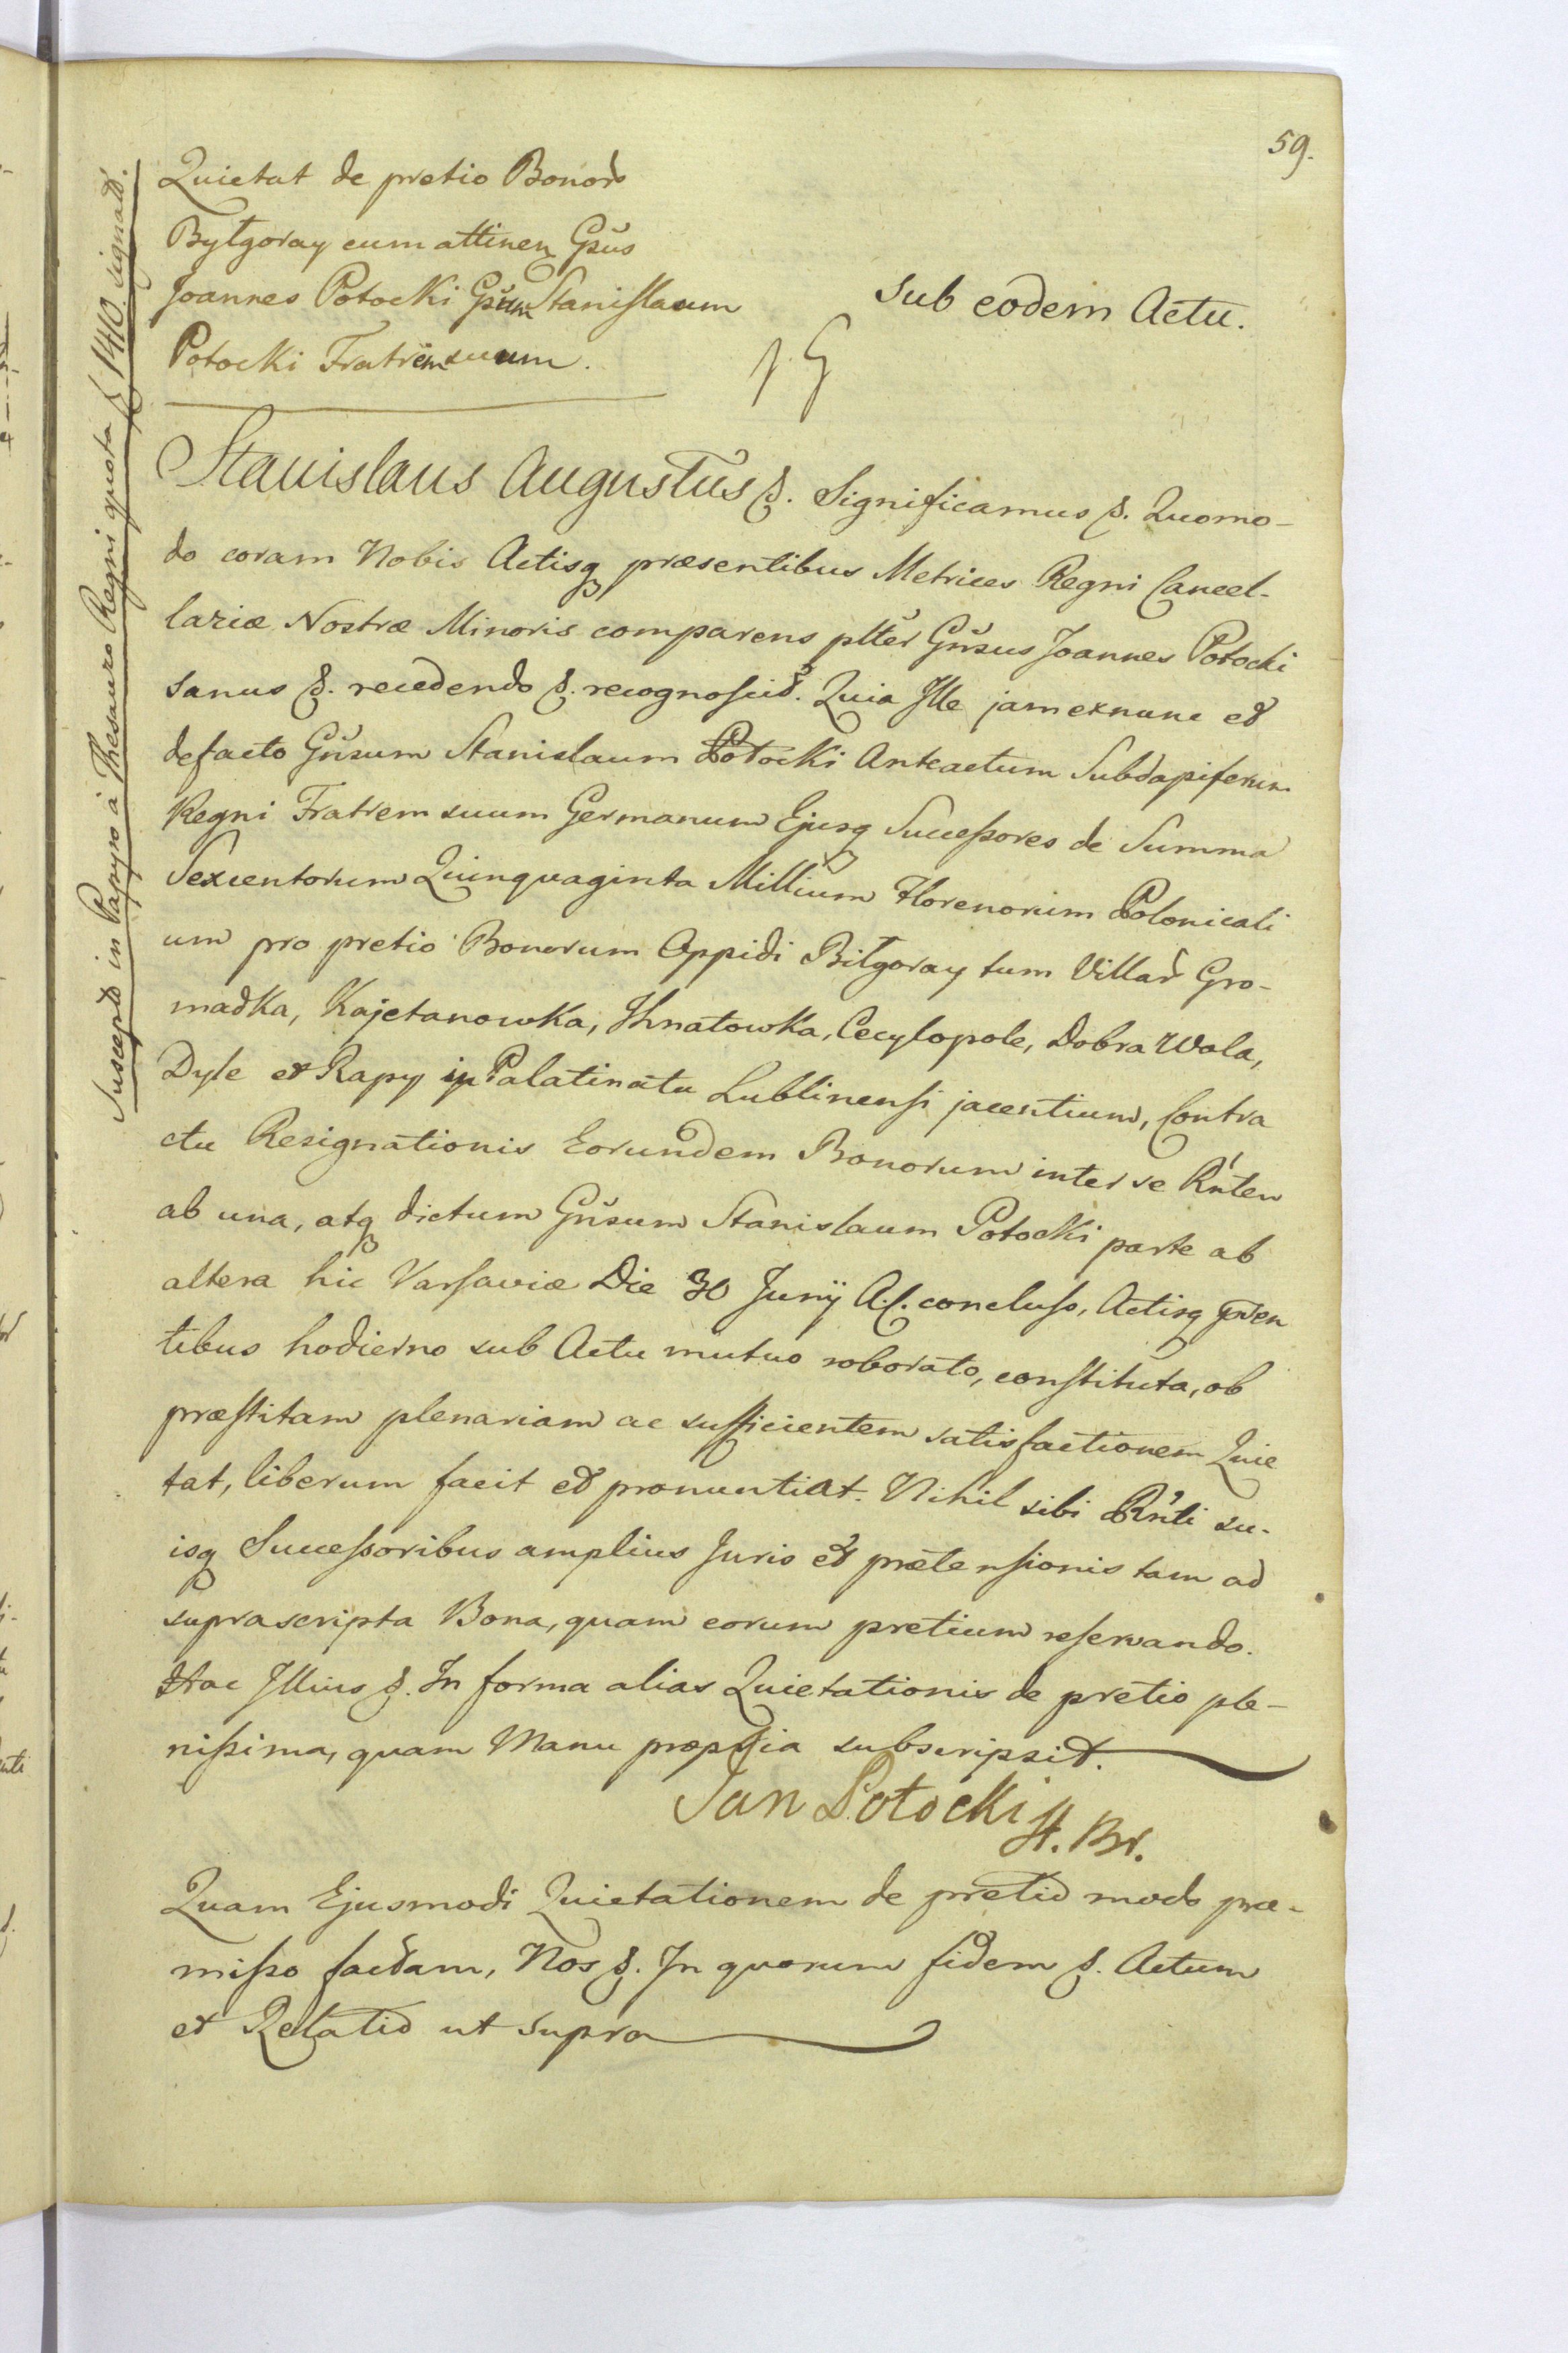 59.
Quietat de pretio Bonor
Bytgoray cum attinen Gsus
Joannes Potocki Gsum Stanislaum
Potocki Fratrem suum.
Sub eodem Actu.
Suscepto in Papyro à Thesauro Regni quota f 1410 signato.
Stanislaus Augustus &. Significamus &. Quomo-
do coram Nobis Actisq præsentibus Metrices Regni Cancel-
lariæ Nostræ Minoris comparens plter Gnsus Joannes Potocki
sanus &. recedendo &. recognoscit. Quia Ille jam exnunc et
defacto Gnsum Stanislaum Potocki Anteactum Subdapiferum
Regni Fratrem suum Germanum Ejusq Successores de Summa
Sexcentorum Quinquaginta Millium Florenorum Polonicali
um pro pretio Bonorum Oppidi Biłgoray tum Villar Gro-
madka, Kajetanowka, Ihnatowka, Cecylopole, Dobra Wola,
Dyle et Rapy in Palatinatu Lublinensi jacentium, Contra
ctu Resignationis Eorundem Bonorum inter se Rnten
ab una, atq dictum Gnsum Stanislaum Potocki parte ab
altera hic Varsaviæ Die 30 Junÿ A.C. concluso, Actisq præn
tibus hodierno sub Actu mutuo roborato, constituta, ob
præstitam plenariam ac sufficientem satisfactionem Quie
tat, liberum facit et pronuntiat. Nihil sibi Rnti su-
isq Successoribus amplius Juris et prætensionis tam ad
suprascripta Bona, quam eorum pretium reservando.
Hac Illius &. In forma alias Quietationis de pretio ple-
nissima, quam Manu propria subscripsit.
Jan Potocki St. Br.
Quam Ejusmodi Quietationem de pretio modo præ-
misso factam, Nos &. In quorum fidem &. Actum
et Relatio ut supra